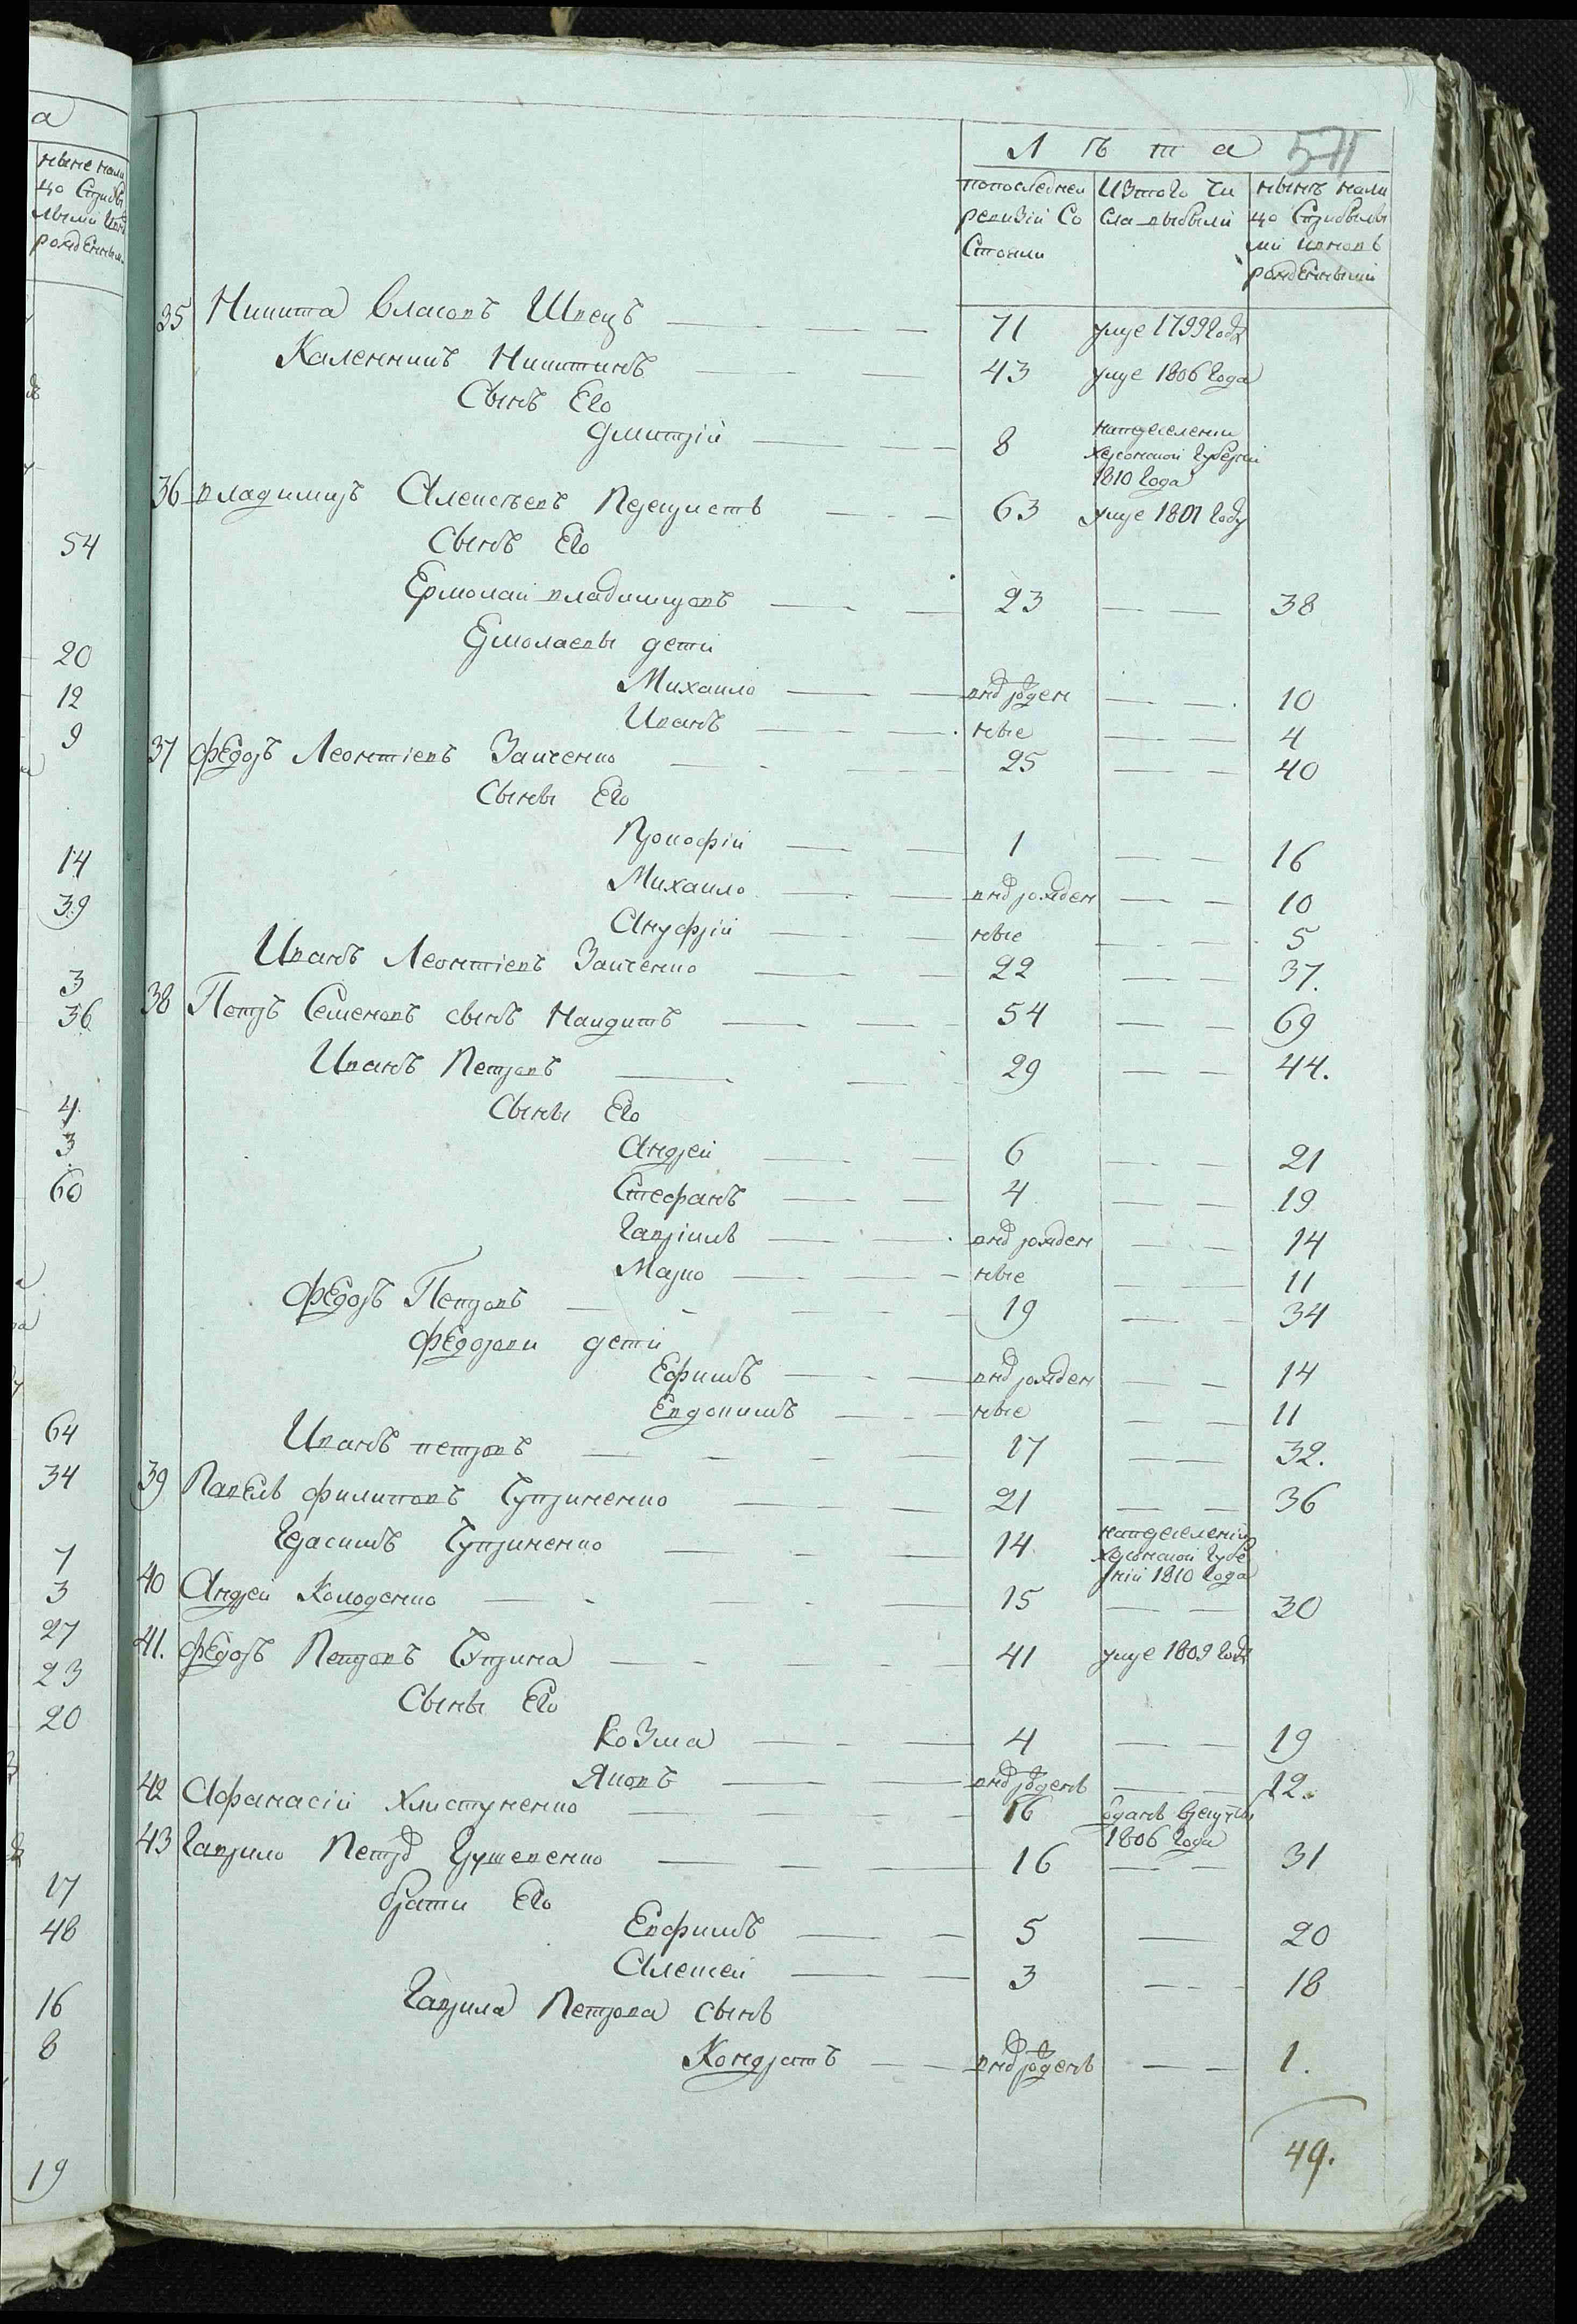 Лѣта 571
попоследнеи ревизіи Состояли
Изтого Числа выбыли
нынѣ налицо Сприбылыми ивновь рожденными
35 Никита Власовъ Швецъ 71 умре 1799 Года
Каленникъ Никитинъ 43 умре 1806 Года
Сынъ Его
Дмитрій 8 напереселении Херсонской Губерніи 1810 Года
36 владимиръ Алексѣевъ Перехристъ 63 умре 1801 Году
Сынъ Его
Ермолаи владимировъ 23 38
Ермолаевы дети
Михаило вновь рожден 10
Иванъ ные 4
37 Федоръ Леонтіевъ Заиченко 25 40
Сыны Его
Прокофіи 1 16
Михаило вновь рожден 10
Ануфріи ные 5
Иванъ Леонтіевъ Заиченко 22 37.
38 Петръ Семеновъ сынъ 54 69
Иванъ Петровъ 29 44.
Сыны Его
Андреи 6 21
Стефанъ 4 19
Гавріилъ вновь рожден 14
Марко ные 11
Федоръ Петровъ 19 34
Федорови дети
Ефимъ вновь рожден 14
Евдокимъ ные 11
Иванъ петровъ 17 32.
39 Павелъ филиповъ Чуприненко 21 36
Герасимъ Чуприненко 14 напереселеніи Херсонской Губерніи 1810 Года
40 Андреи Колоденко 15 30
41. Федоръ Петровъ Чуприна 41 умре 1809 Года
Сыны Его
Козма 4 19
Яковъ вновь рожденъ 12.
42 Афанасіи Хлистуненко 16 Отданъ Врекруты 1806 Года
43 Гаврило Петров 16 31
брати Его
Евфимъ 5 20
Алексеи 3 18
Гаврила Петрова сынъ
Кондратъ вновь рожденъ 1.
49.
а
ныне нали
цо Сприбы
лыми ивновь
рожденными
54
20
12
9
14
39
3
36
4
3
60
64
34
7
3
27
23
20
17
48
16
8
19